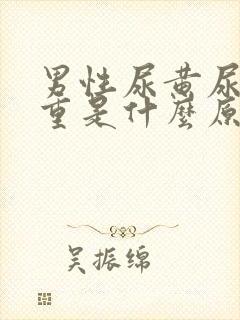 男性尿黄尿
重是什麼原
吴振绵